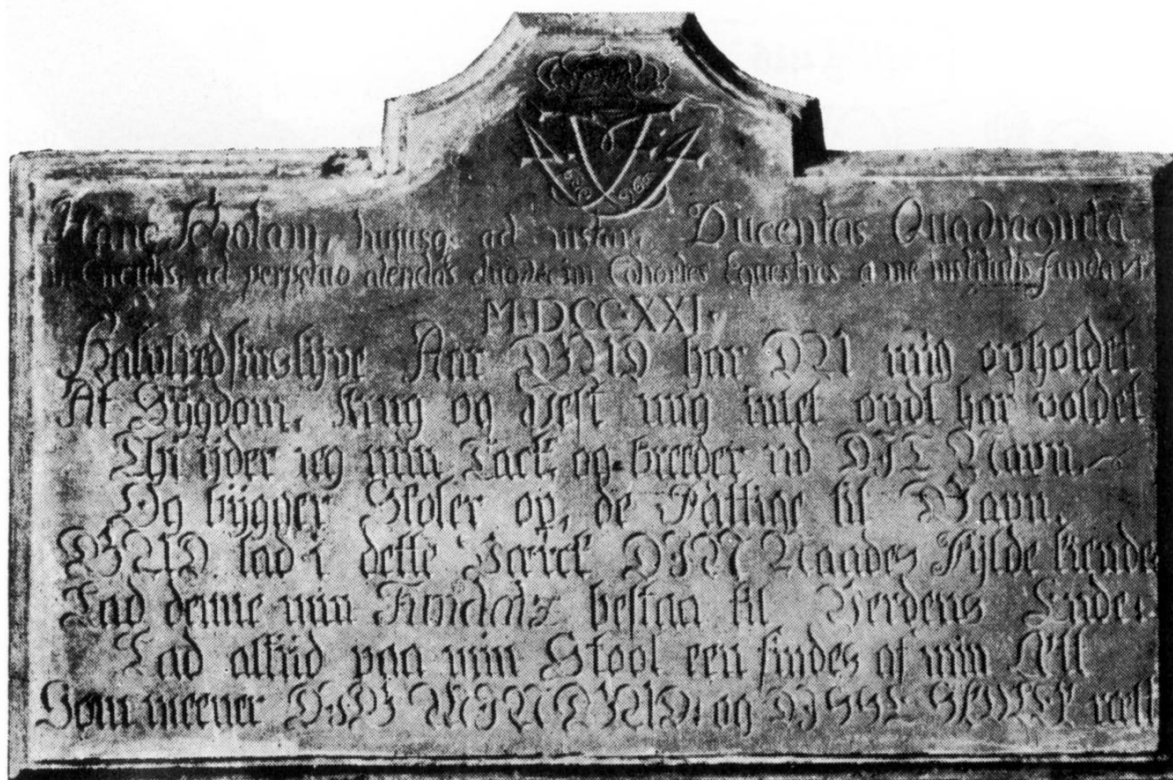 Hanc Scholam, hujusq; ad instar, Ducentas Quadraginta
in Circulis, ad perpetuo alendas duodecim Cohortes Equestres a me institutis, fundavi
M.DCC.XXI.
Halvtredsinstyve Aar GUD har DU mig opholdet
At Sÿgdom, Krig og Pest mig intet ondt har voldet
Thi ÿder ieg min Tack og breeder ud DIT Navn,
Og bÿgger Skoler op, de Fattige til Gavn.
GUD lad i dette Værck DIN Naades Fÿlde kiendes
Lad denne min Fundatz bestaa til Verdens Ende.
Lad altiid paa min Stool een findes af min Æt
Som meener DIG MIN GUD: og DISSE SKOLER ræt